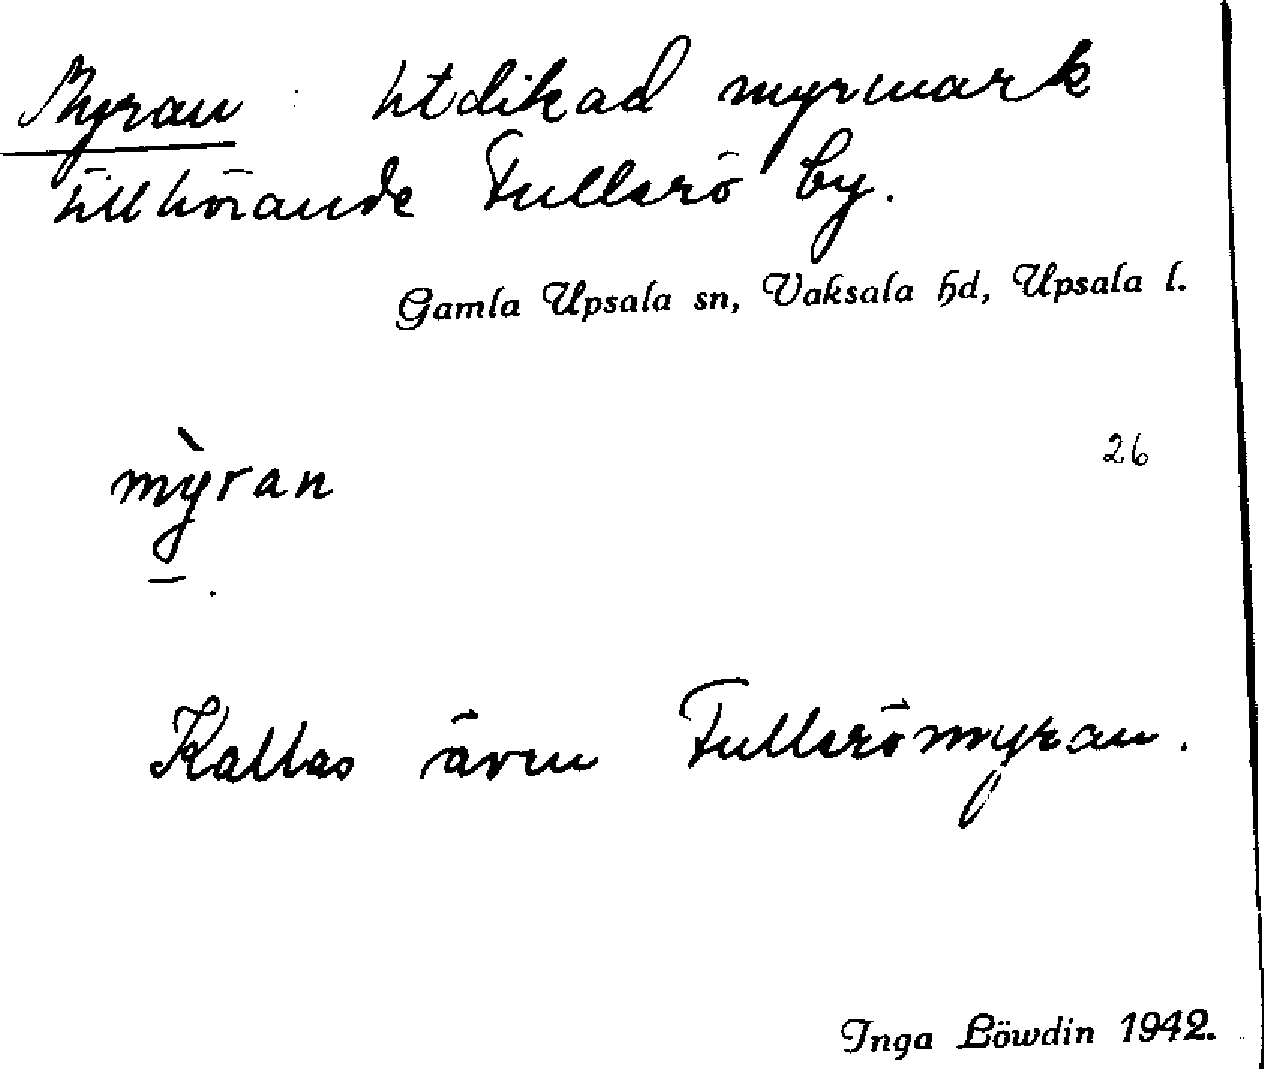 Myran : Utdikad myrmark
tillhörande Fullerö by.
Gamla Upsala sn, Vaksala hd, Upsala l.
26
mỳran
Kallas även Fullerömyran.
Inga Löwdin 1942.